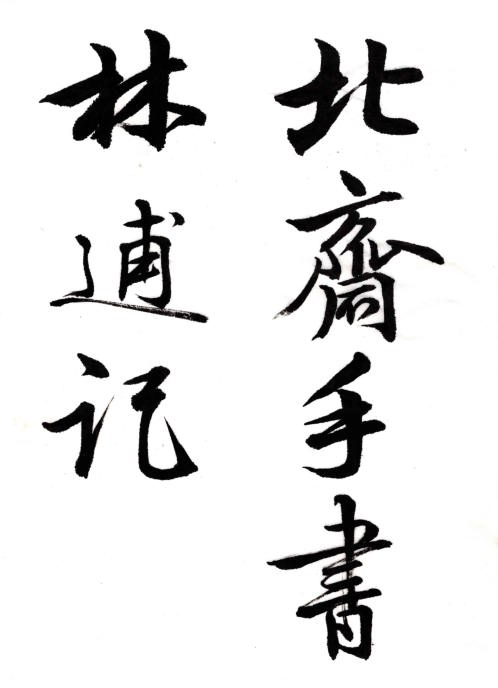 北齋手書
林逋记